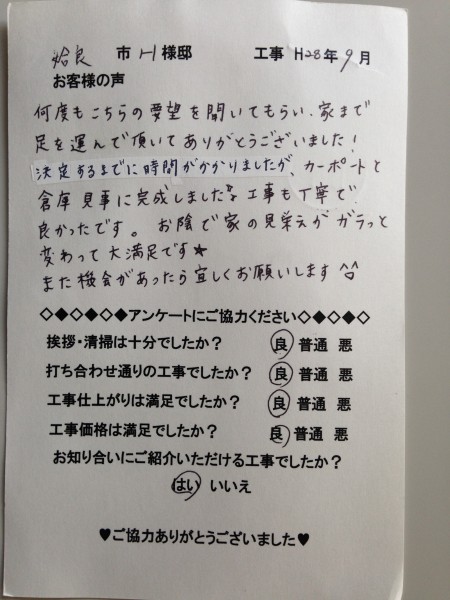 姶良 市 H 様邸 工事 H28年 9月
お客様の声
何度もこちらの要望を聞いてもらい、家まで
足を運んで頂いてありがとうございました!
決定するまでに時間がかかりましたが、カーポートと
倉庫 見事に完成しました 工事も丁寧で
良かったです。 お陰で家の見栄えがガラっと
変わって大満足です★
また機会があったら宜しくお願いします^^
◇◆◇◆◇◆アンケートにご協力ください◇◆◇◆◇
挨拶・清掃は十分でしたか? 良 普通 悪
打ち合わせ通りの工事でしたか? 良 普通 悪
工事仕上がりは満足でしたか? 良 普通 悪
工事価格は満足でしたか? 良 普通 悪
お知り合いにご紹介いただける工事でしたか?
はい いいえ
♥ご協力ありがとうございました♥